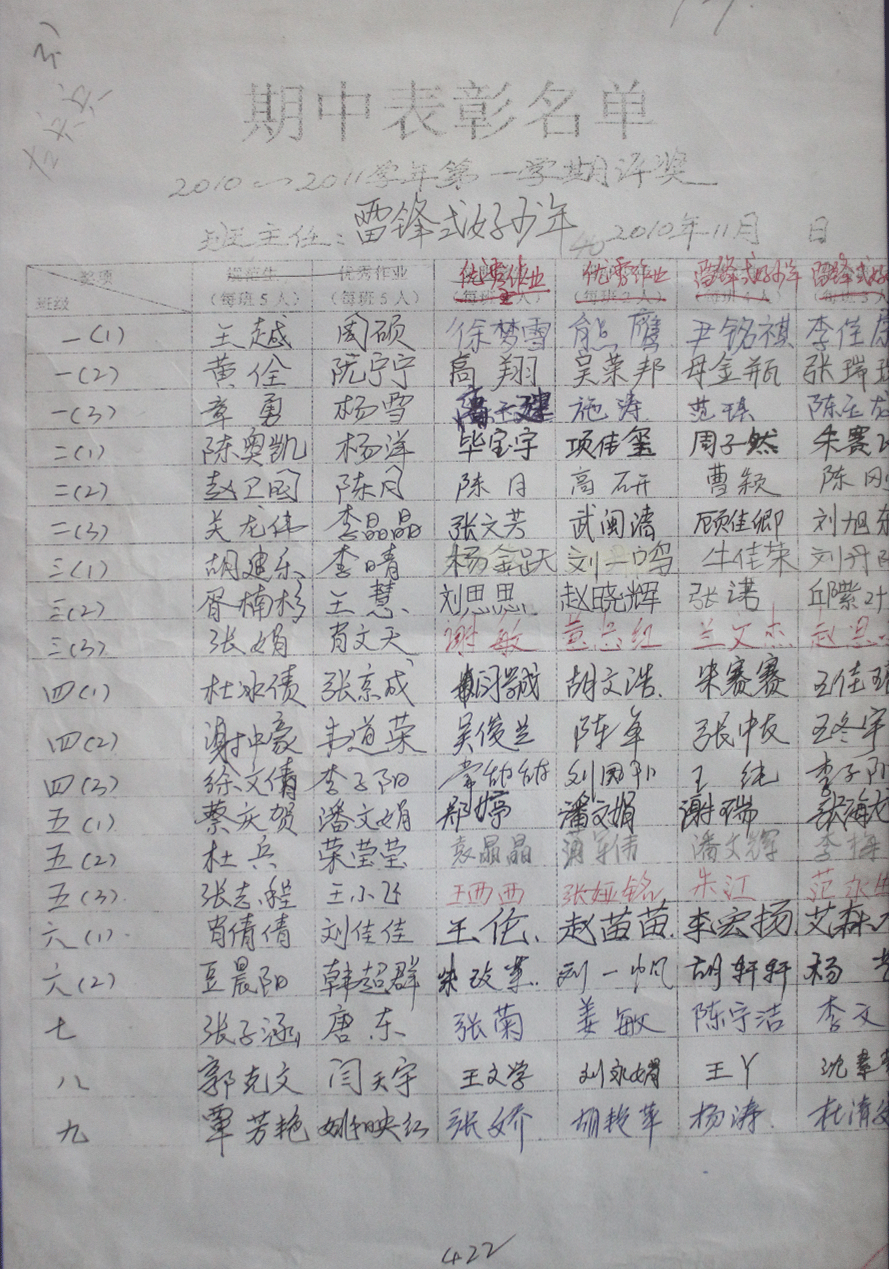 期中表彰名单
2010—2011学年第一学期评奖
班主任：雷锋式好少年 2010年11月 日
奖项 规范生 优秀作业 优秀作业 优秀作业 雷锋式好少年 雷锋式好
班级 （每班5人） （每班5人）
一(1) 王越 周硕 徐梦雪 俞点鹰 尹铭祺 李佳康
一(2) 黄佺 阮宁宁 高翔 吴荣邦 母金瓶 张瑞
一(3) 章勇 杨雪 施涛 范琪 陈
二(1) 陈奥凯 杨洋 毕宝宇 项佳玺 周子然 朱赛
二(2) 赵卫国 陈月 陈月 高研 曹颖 陈刚
二(3) 关龙伟 李晶晶 张文芳 武闽涛 顾佳卿 刘旭东
三(1) 胡建乐 李晴 杨鑫跃 刘一鸣 牛佳荣 刘丹阳
三(2) 胥楠移 王慧 刘思思 赵晓辉 张诺 邱紫叶
三(3) 张娟 肖文天 谢敏 黄志红 兰文杰 赵思
四(1) 杜冰倩 张京成 胡文浩 朱赛赛 王佳
四(2) 谢坤豪 朱道荣 吴俊兰 陈军 张中友 王冬宇
四(3) 徐文倩 李子阳 常 刘国 王纯 李子阳
五(1) 蔡庆贺 潘文娟 郑婷 潘文娟 谢瑞 张海龙
五(2) 杜兵 荣莹莹 袁晶晶 蒲军伟 潘文辉 李梅
五(3) 张志程 王小飞 王西西 张娅铭 朱江 范永生
六(1) 肖倩倩 刘佳佳 王伦 赵苗苗 李宏扬 艾森
六(2) 豆晨阳 韩超群 朱玫 刘一帆 胡轩轩 杨
七 张子涵 唐东 张菊 姜敏 陈宇洁 李文
八 郭克文 闫天宇 王文学 刘永娟 王丫 沈
九 覃芳艳 姚映红 张娇 胡艳萍 杨涛 杜清
422